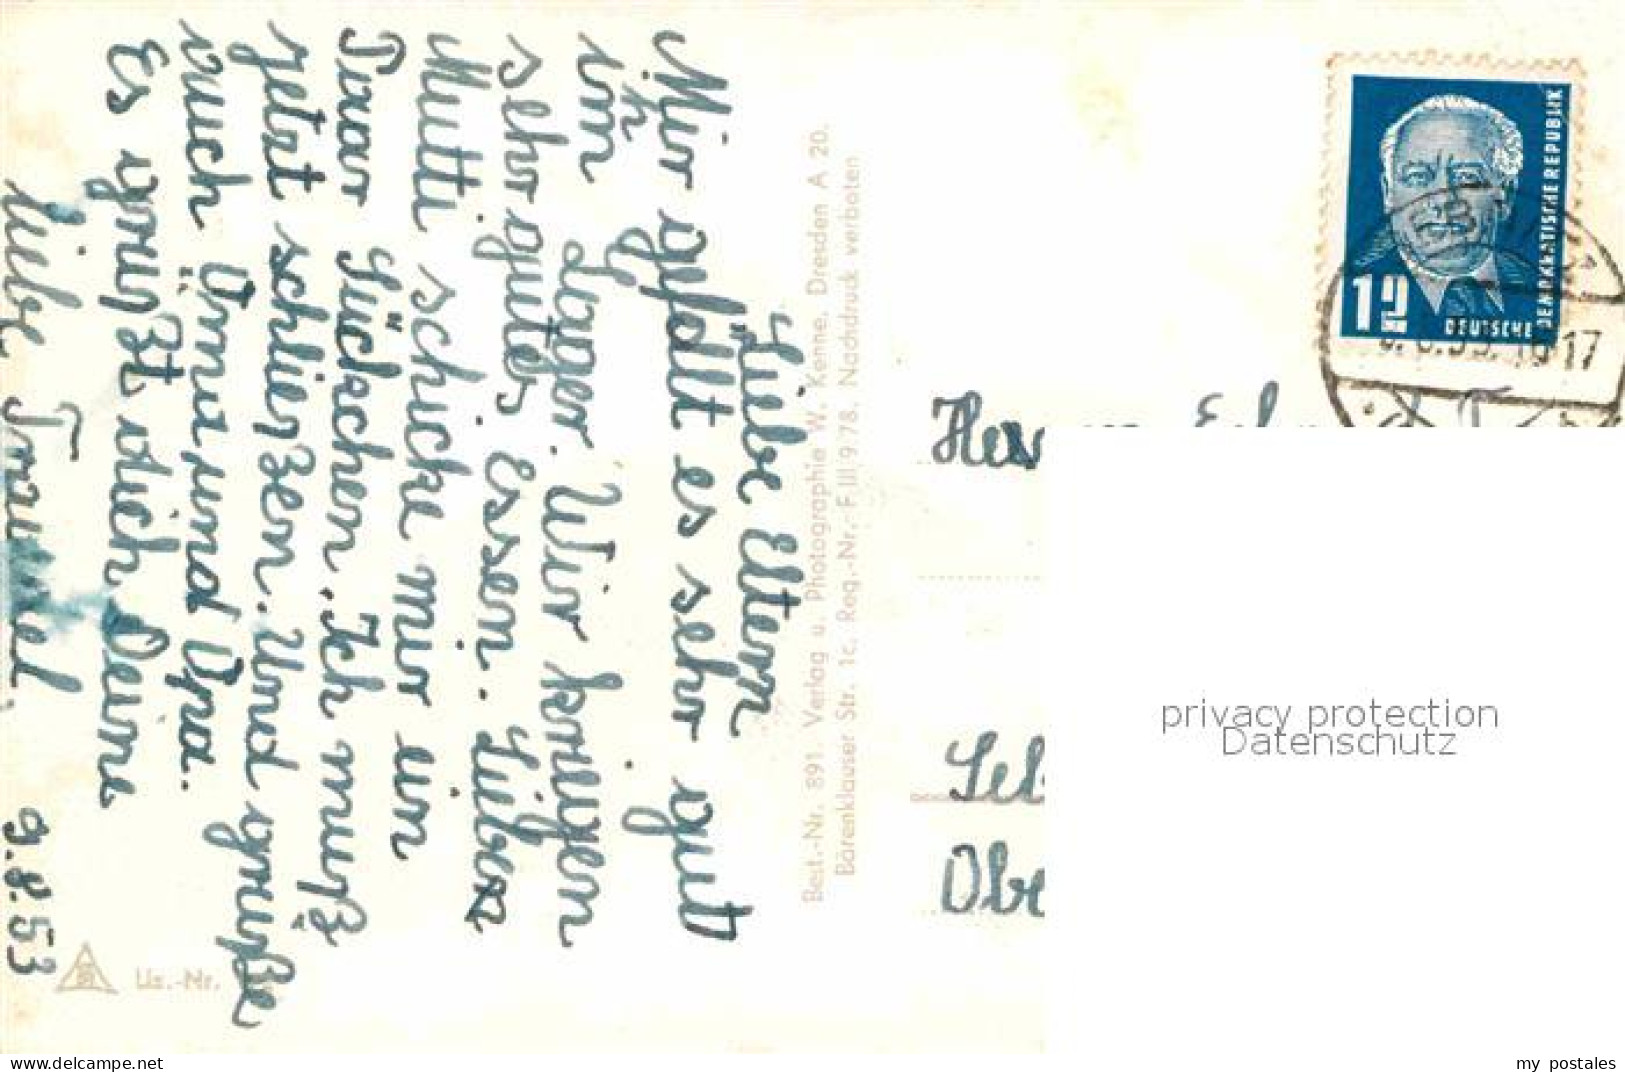 Liebe Eltern
Mir gefällt es sehr gut
im Lager. Wir kriegen
sehr gutes Essen. Liebes
Mutti schicke mir ein
Paar Säckchen. Ich muß
jetzt schließen. Und grüße
auch Oma und Opa.
Es grüßt dich Deine
liebe Traudel.
9.8.53
Liz.-Nr.
Best.-Nr. 891. Verlag u. Photographie W. Kenne, Dresden A 20.
Bärenklauser Str. 1c. Reg.-Nr.- F III 9 78. Nachdruck verboten
12
DEUTSCHE
DEMOKRATISCHE REPUBLIK
16-17
privacy protection
Datenschutz
delcampe.net
my postales